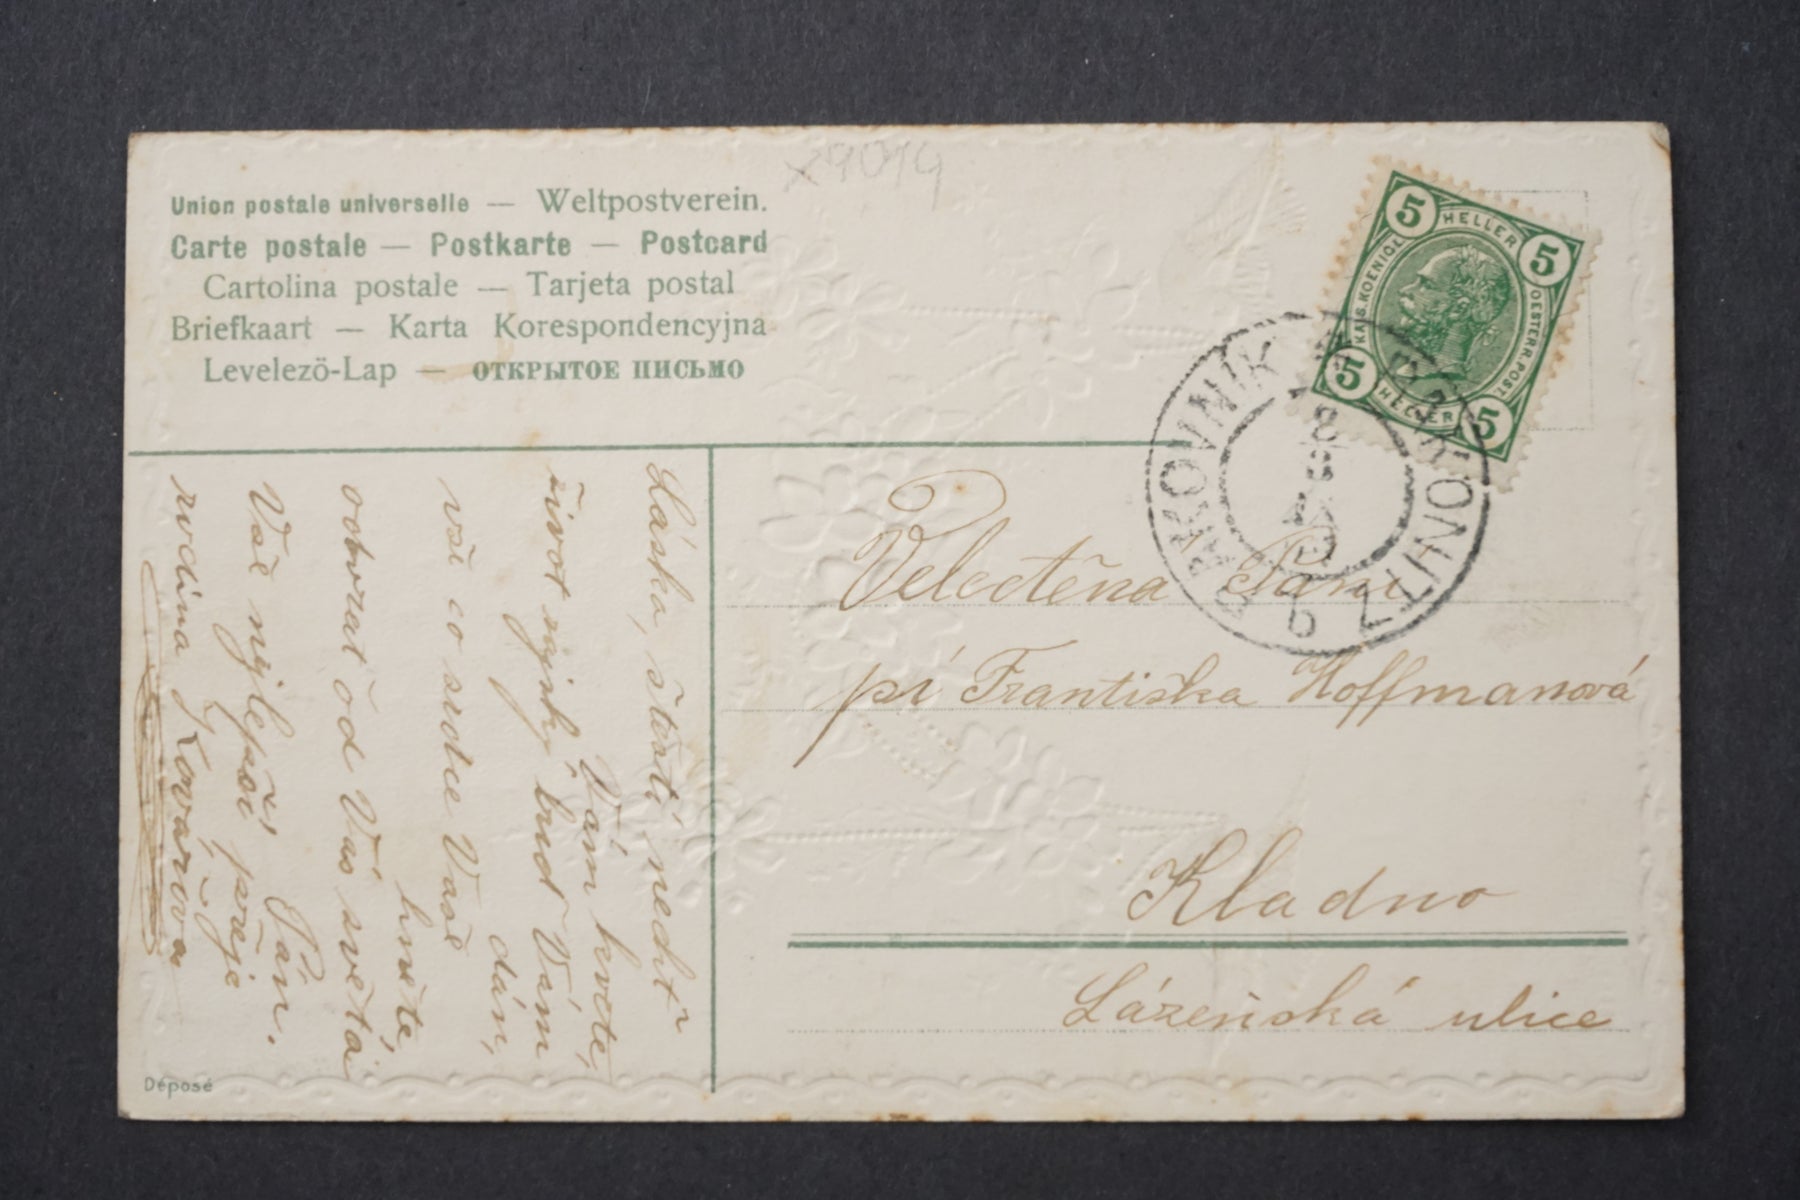 x9019
Union postale universelle — Weltpostverein.
Carte postale — Postkarte — Postcard
Cartolina postale — Tarjeta postal
Briefkaart — Karta Korespondencyjna
Levelező-Lap — ОТКРЫТОЕ ПИСЬМО
5 HELLER 5
KAIS. KOENIGL. OESTERR. POST
5 HELLER 5
RAKOVNIK RAKONITZ
Láska, štěstí nechť
Vám kvete,
život rajský buď Vám
dán,
vše co srdce Vaše
hněte,
odvrat od Vás světa
Pán.
Vše nejlepší přeje
rodina Kovářova
Velectěna Paní
pí Františka Hoffmanová
Kladno
Lázeňská ulice
Déposé